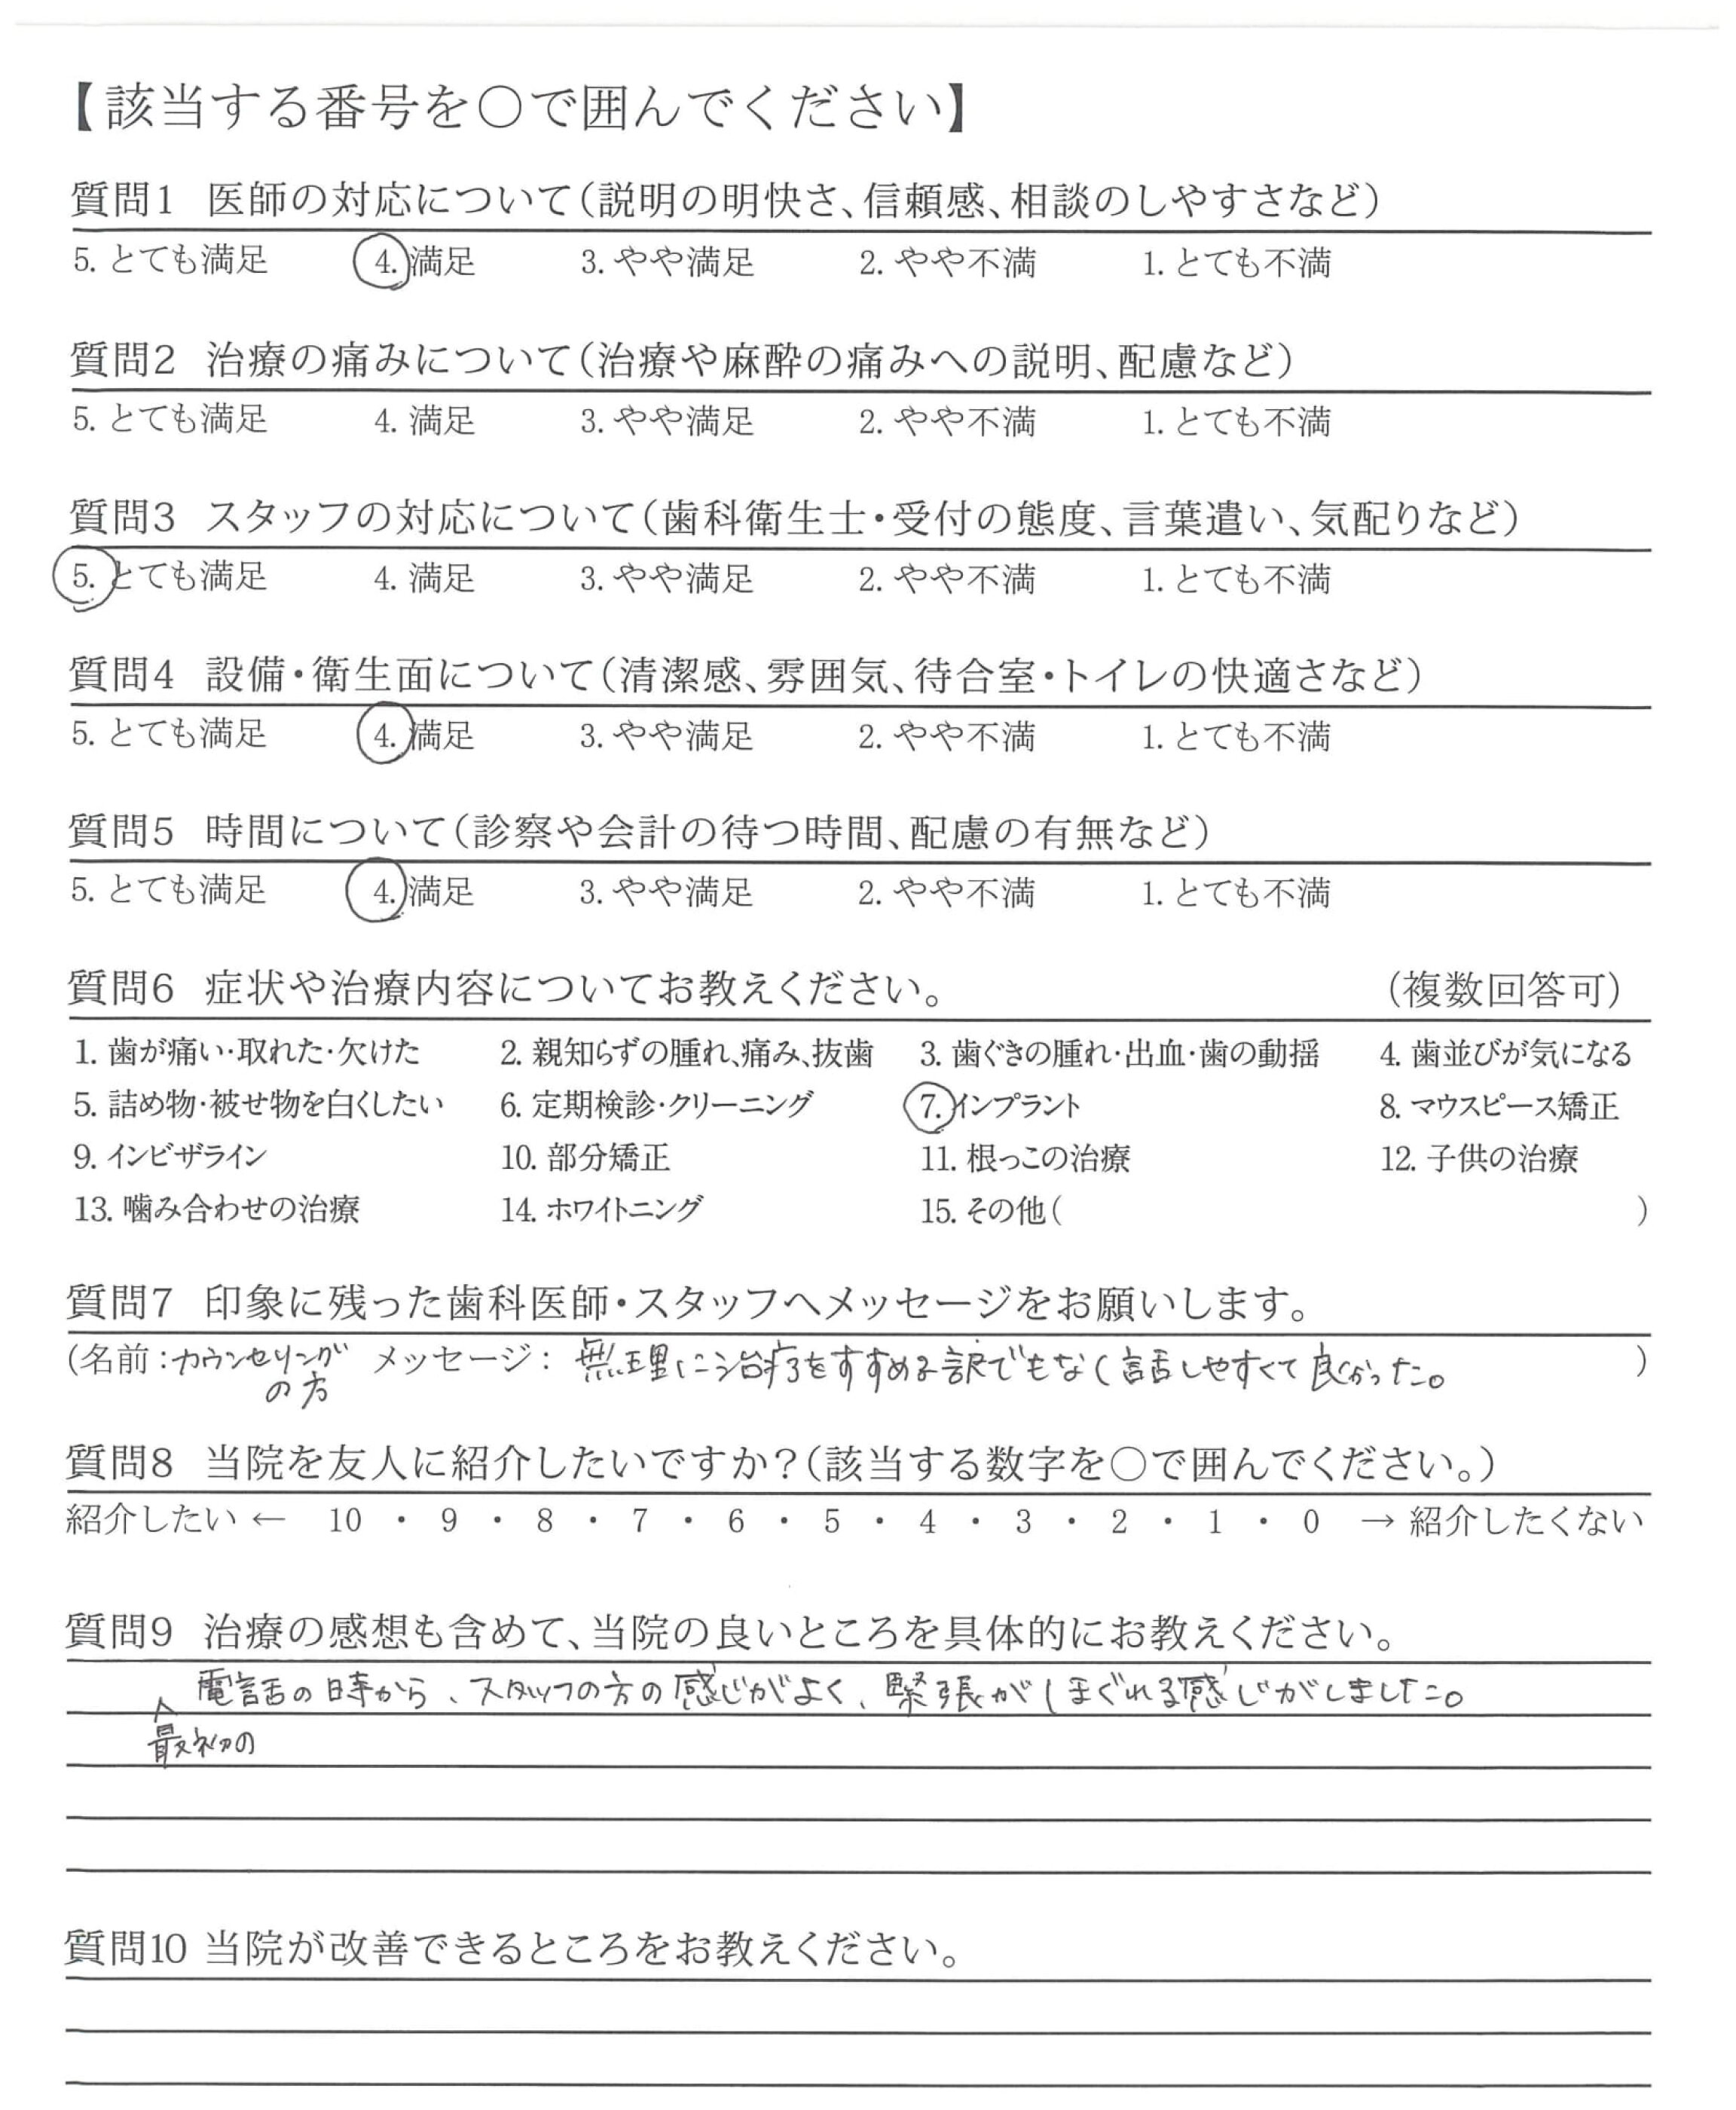 【該当する番号を〇で囲んでください】
質問1 医師の対応について(説明の明快さ、信頼感、相談のしやすさなど)
5. とても満足 4. 満足 3. やや満足 2. やや不満 1. とても不満
質問2 治療の痛みについて(治療や麻酔の痛みへの説明、配慮など)
5. とても満足 4. 満足 3. やや満足 2. やや不満 1. とても不満
質問3 スタッフの対応について(歯科衛生士・受付の態度、言葉遣い、気配りなど)
5. とても満足 4. 満足 3. やや満足 2. やや不満 1. とても不満
質問4 設備・衛生面について(清潔感、雰囲気、待合室・トイレの快適さなど)
5. とても満足 4. 満足 3. やや満足 2. やや不満 1. とても不満
質問5 時間について(診察や会計の待つ時間、配慮の有無など)
5. とても満足 4. 満足 3. やや満足 2. やや不満 1. とても不満
質問6 症状や治療内容についてお教えください。 (複数回答可)
1. 歯が痛い・取れた・欠けた 2. 親知らずの腫れ、痛み、抜歯 3. 歯ぐきの腫れ・出血・歯の動揺 4. 歯並びが気になる
5. 詰め物・被せ物を白くしたい 6. 定期検診・クリーニング 7. インプラント 8. マウスピース矯正
9. インビザライン 10. 部分矯正 11. 根っこの治療 12. 子供の治療
13. 噛み合わせの治療 14. ホワイトニング 15. その他( )
質問7 印象に残った歯科医師・スタッフへメッセージをお願いします。
(名前:カウンセリング メッセージ: 無理に治療をすすめる訳でもなく話しやすくて良かった。 )
の方
質問8 当院を友人に紹介したいですか?(該当する数字を〇で囲んでください。)
紹介したい ← 10 ・ 9 ・ 8 ・ 7 ・ 6 ・ 5 ・ 4 ・ 3 ・ 2 ・ 1 ・ 0 → 紹介したくない
質問9 治療の感想も含めて、当院の良いところを具体的にお教えください。
電話の時から、スタッフの方の感じがよく、緊張がしまぐれる感じがしました。
最初の
質問10 当院が改善できるところをお教えください。